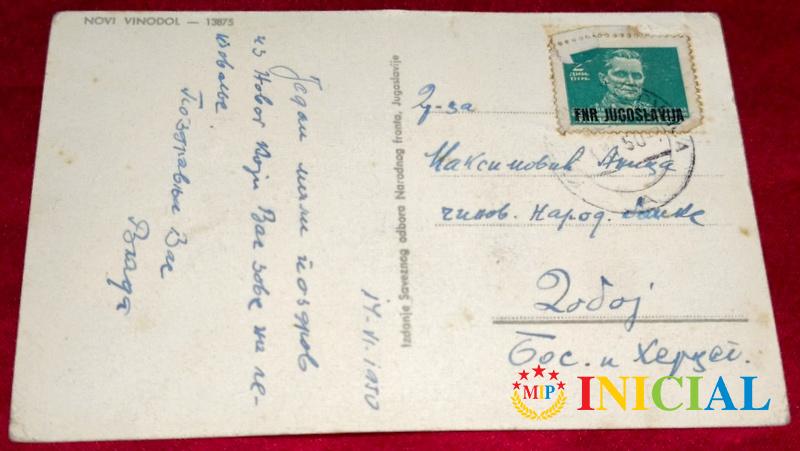 NOVI VINODOL — 13875
Један мали поздров
из Новог који Вас зове на ле-
товање.
Поздравља Вас
Влада
14-VI-1950
Izdanje Saveznog odbora Narodnog fronta, Jugoslavije
2
ДИН
DIN.
FNR JUGOSLAVIJA
50
Г-ђа
Максимовић Анка
чинов. Народ. банке
Добој
Бос. и Херцег.
MIP
INICIAL